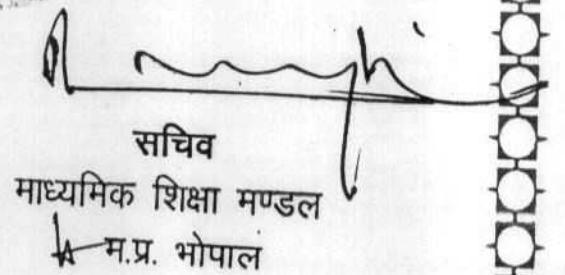 सचिव
माध्यमिक शिक्षा मण्डल
म.प्र. भोपाल